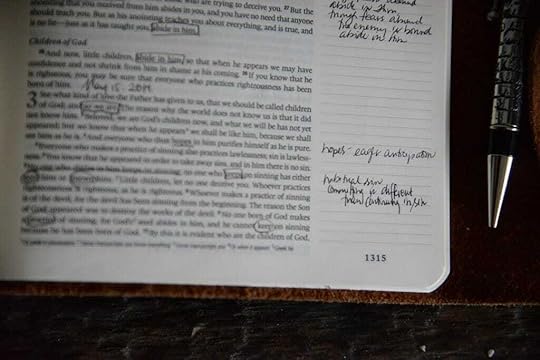 anointing that you received from him abides in you, and you have no need that anyone
should teach you. But as his anointing teaches you about everything, and is true, and
is no lie—just as it has taught you, abide in him.
Children of God
²⁸ And now, little children, abide in him, so that when he appears we may have
confidence and not shrink from him in shame at his coming. ²⁹ If you know that he
is righteous, you may be sure that everyone who practices righteousness has been
born of him. May 15, 2014
3 See what kind of love the Father has given to us, that we should be called children
of God; and so we are. The reason why the world does not know us is that it did
not know him. ² Beloved, we are God's children now, and what we will be has not yet
appeared; but we know that when he appears we shall be like him, because we shall
see him as he is. ³ And everyone who thus hopes in him purifies himself as he is pure.
⁴ Everyone who makes a practice of sinning also practices lawlessness; sin is lawless-
ness. ⁵ You know that he appeared in order to take away sins, and in him there is no sin.
⁶ No one who abides in him keeps on sinning; no one who keeps on sinning has either
seen him or known him. ⁷ Little children, let no one deceive you. Whoever practices
righteousness is righteous, as he is righteous. ⁸ Whoever makes a practice of sinning
is of the devil, for the devil has been sinning from the beginning. The reason the Son
of God appeared was to destroy the works of the devil. ⁹ No one born of God makes
a practice of sinning, for God's seed abides in him, and he cannot keep on sinning
because he has been born of God. ¹⁰ By this it is evident who are the children of God,
abide in him
though tears abound
the enemy is bound
abide in him
hopes - eager anticipation
habitual sin
committing is different
than continuing in sin
1315